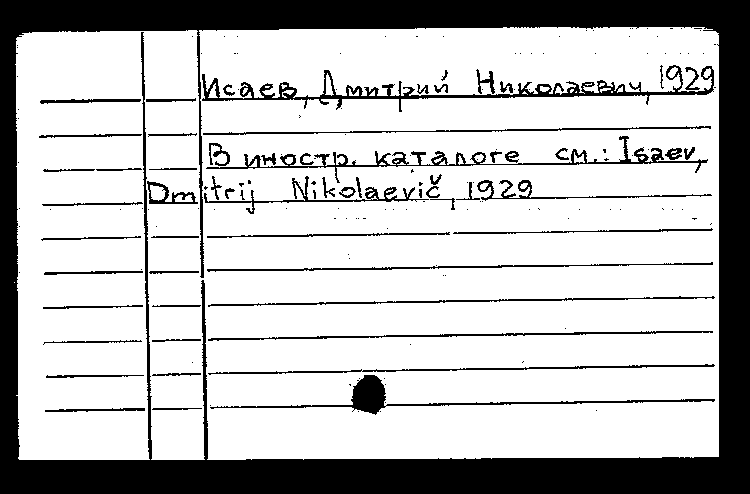 Исаев, Дмитрий Николаевич, 1929
В иностр. каталоге см.: Isaev,
Dmitrij Nikolaevič, 1929